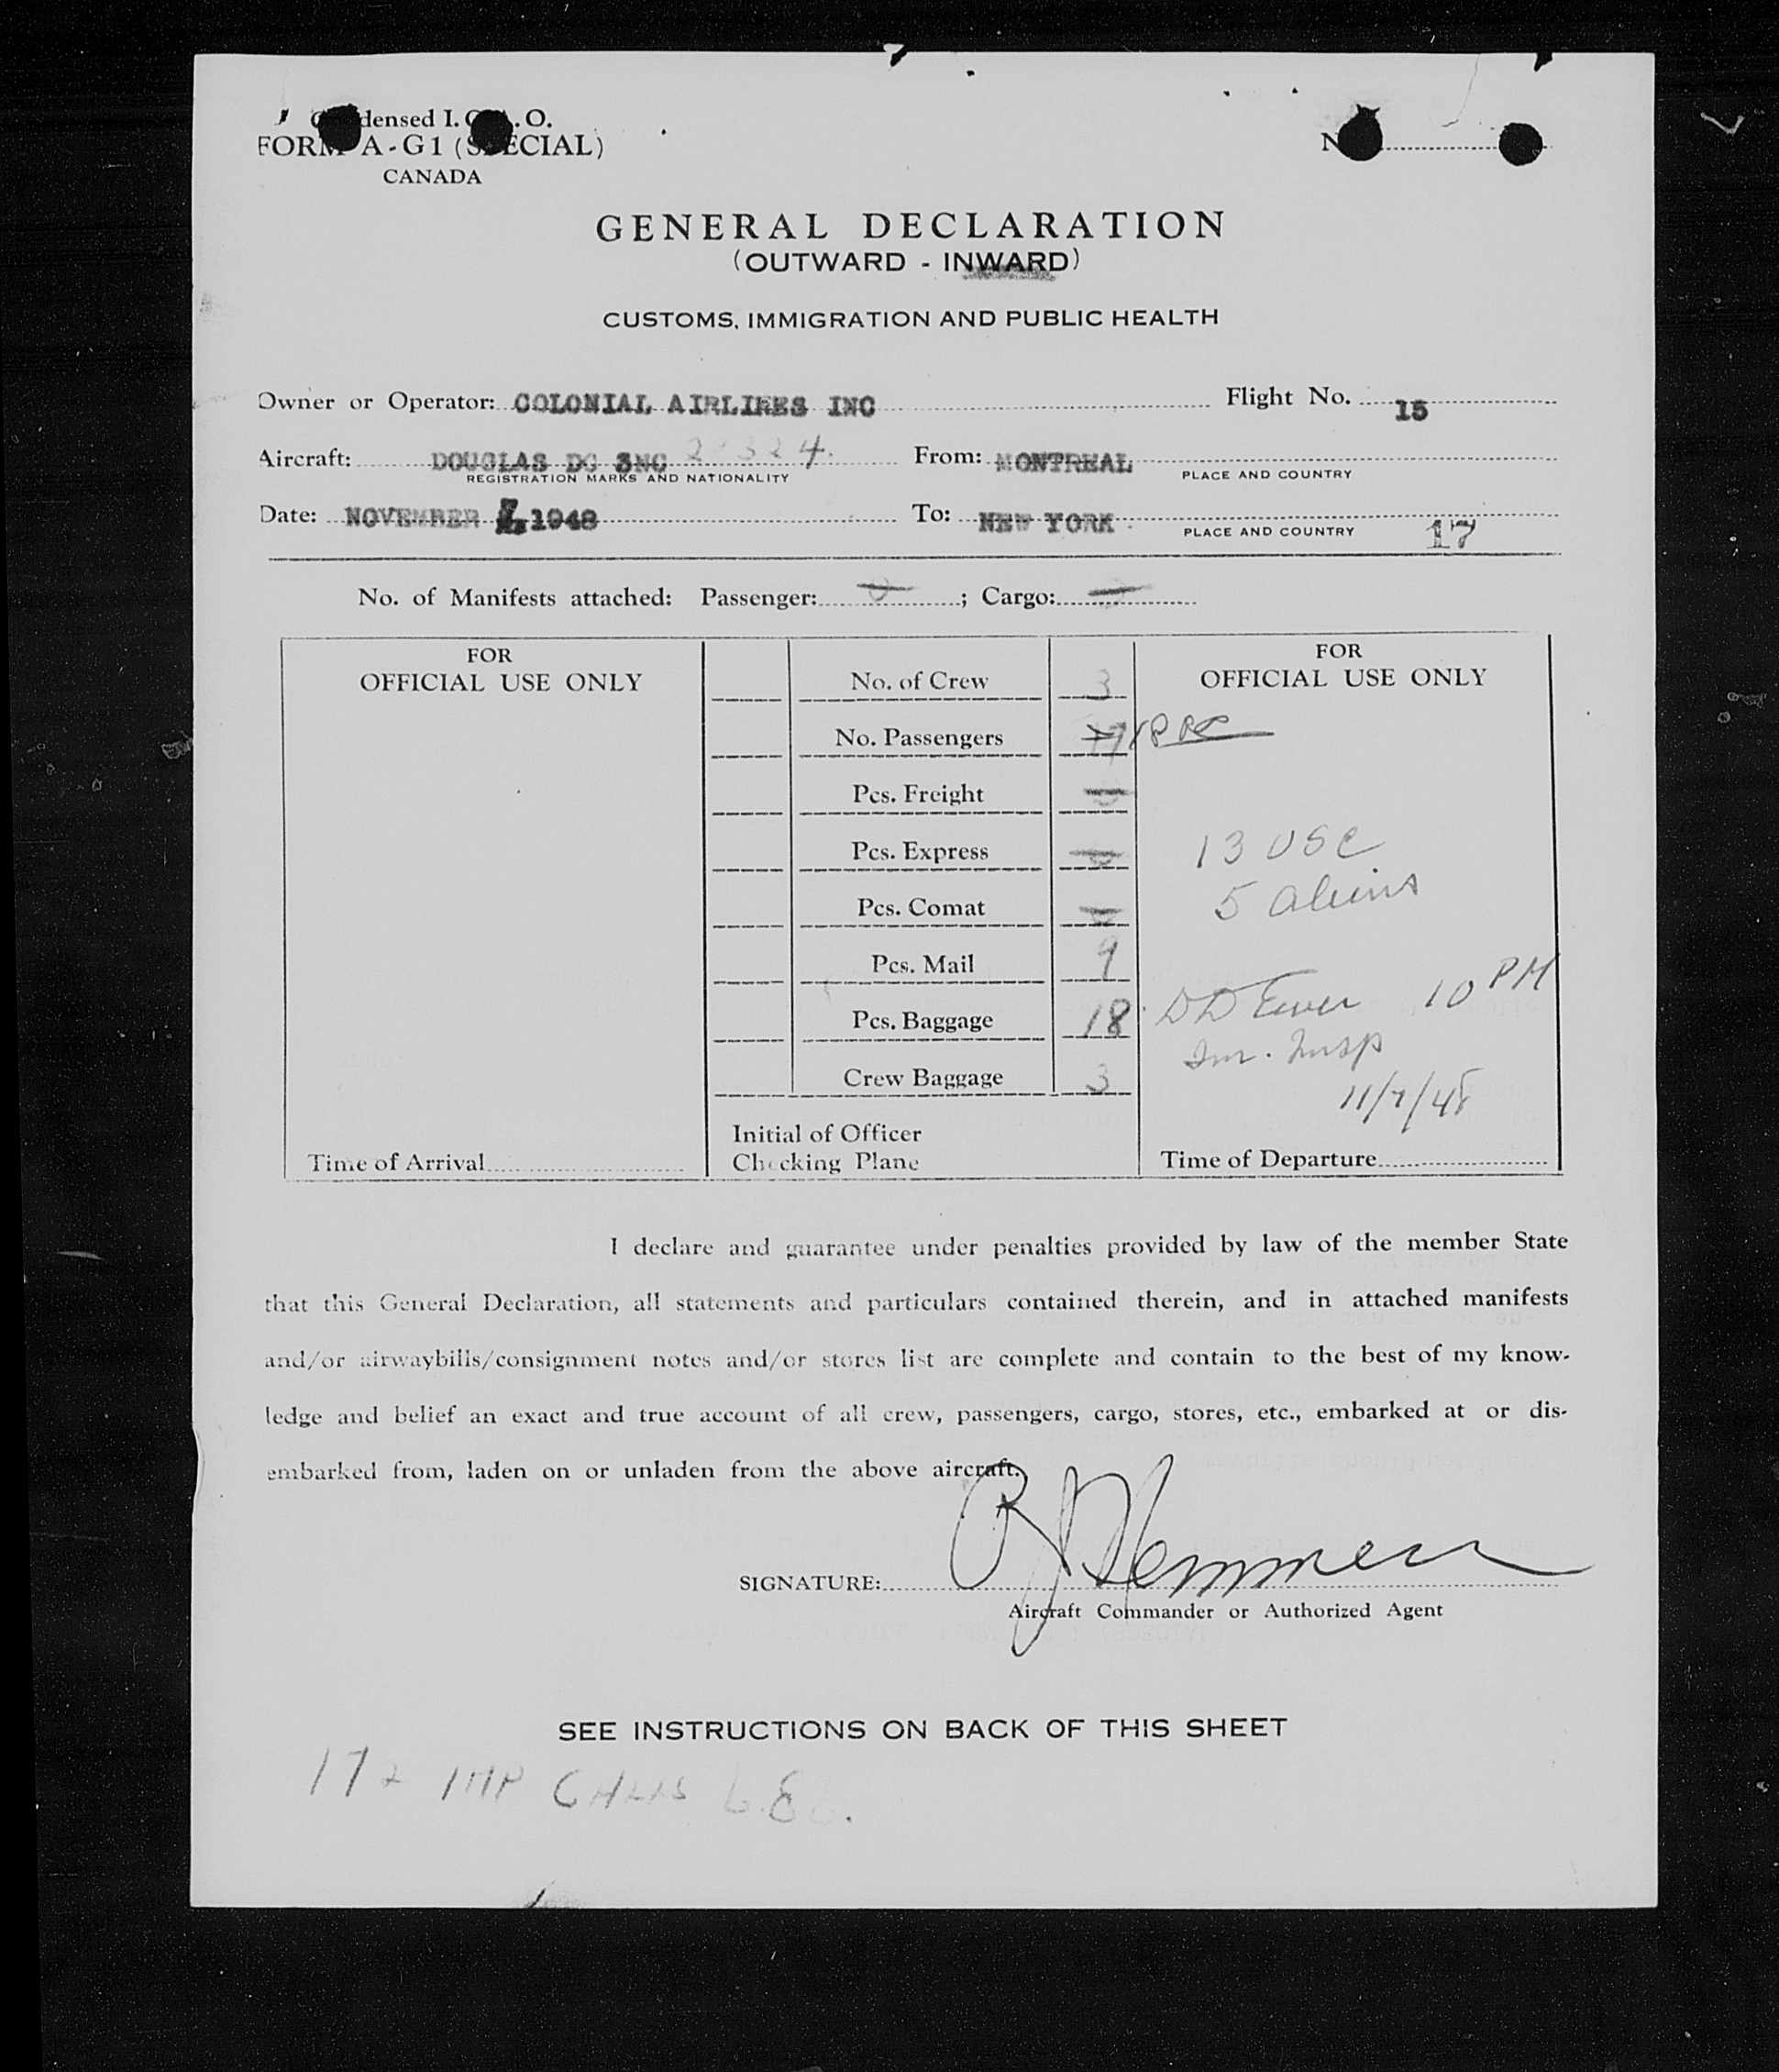 Condensed I.C.A.O.
FORM A-G1 (SPECIAL)
CANADA
GENERAL DECLARATION
(OUTWARD - INWARD)
CUSTOMS, IMMIGRATION AND PUBLIC HEALTH
Owner or Operator: COLONIAL AIRLIRES INC Flight No. 15
Aircraft: DOUGLAS DC 3NC From: MONTREAL
REGISTRATION MARKS AND NATIONALITY PLACE AND COUNTRY
Date: NOVEMBER 7, 1948 To: NEW YORK
PLACE AND COUNTRY 17
No. of Manifests attached: Passenger: ; Cargo:
FOR
OFFICIAL USE ONLY
Time of Arrival
No. of Crew 3
No. Passengers 17 18
Pcs. Freight
Pcs. Express
Pcs. Comat
Pcs. Mail 9
Pcs. Baggage 18
Crew Baggage 3
Initial of Officer
Checking Plane
FOR
OFFICIAL USE ONLY
13 USC
5 aliens
DD 10 PM
Im. Insp
11/7/48
Time of Departure
I declare and guarantee under penalties provided by law of the member State
that this General Declaration, all statements and particulars contained therein, and in attached manifests
and/or airwaybills/consignment notes and/or stores list are complete and contain to the best of my know-
ledge and belief an exact and true account of all crew, passengers, cargo, stores, etc., embarked at or dis-
embarked from, laden on or unladen from the above aircraft.
SIGNATURE:
Aircraft Commander or Authorized Agent
SEE INSTRUCTIONS ON BACK OF THIS SHEET
17